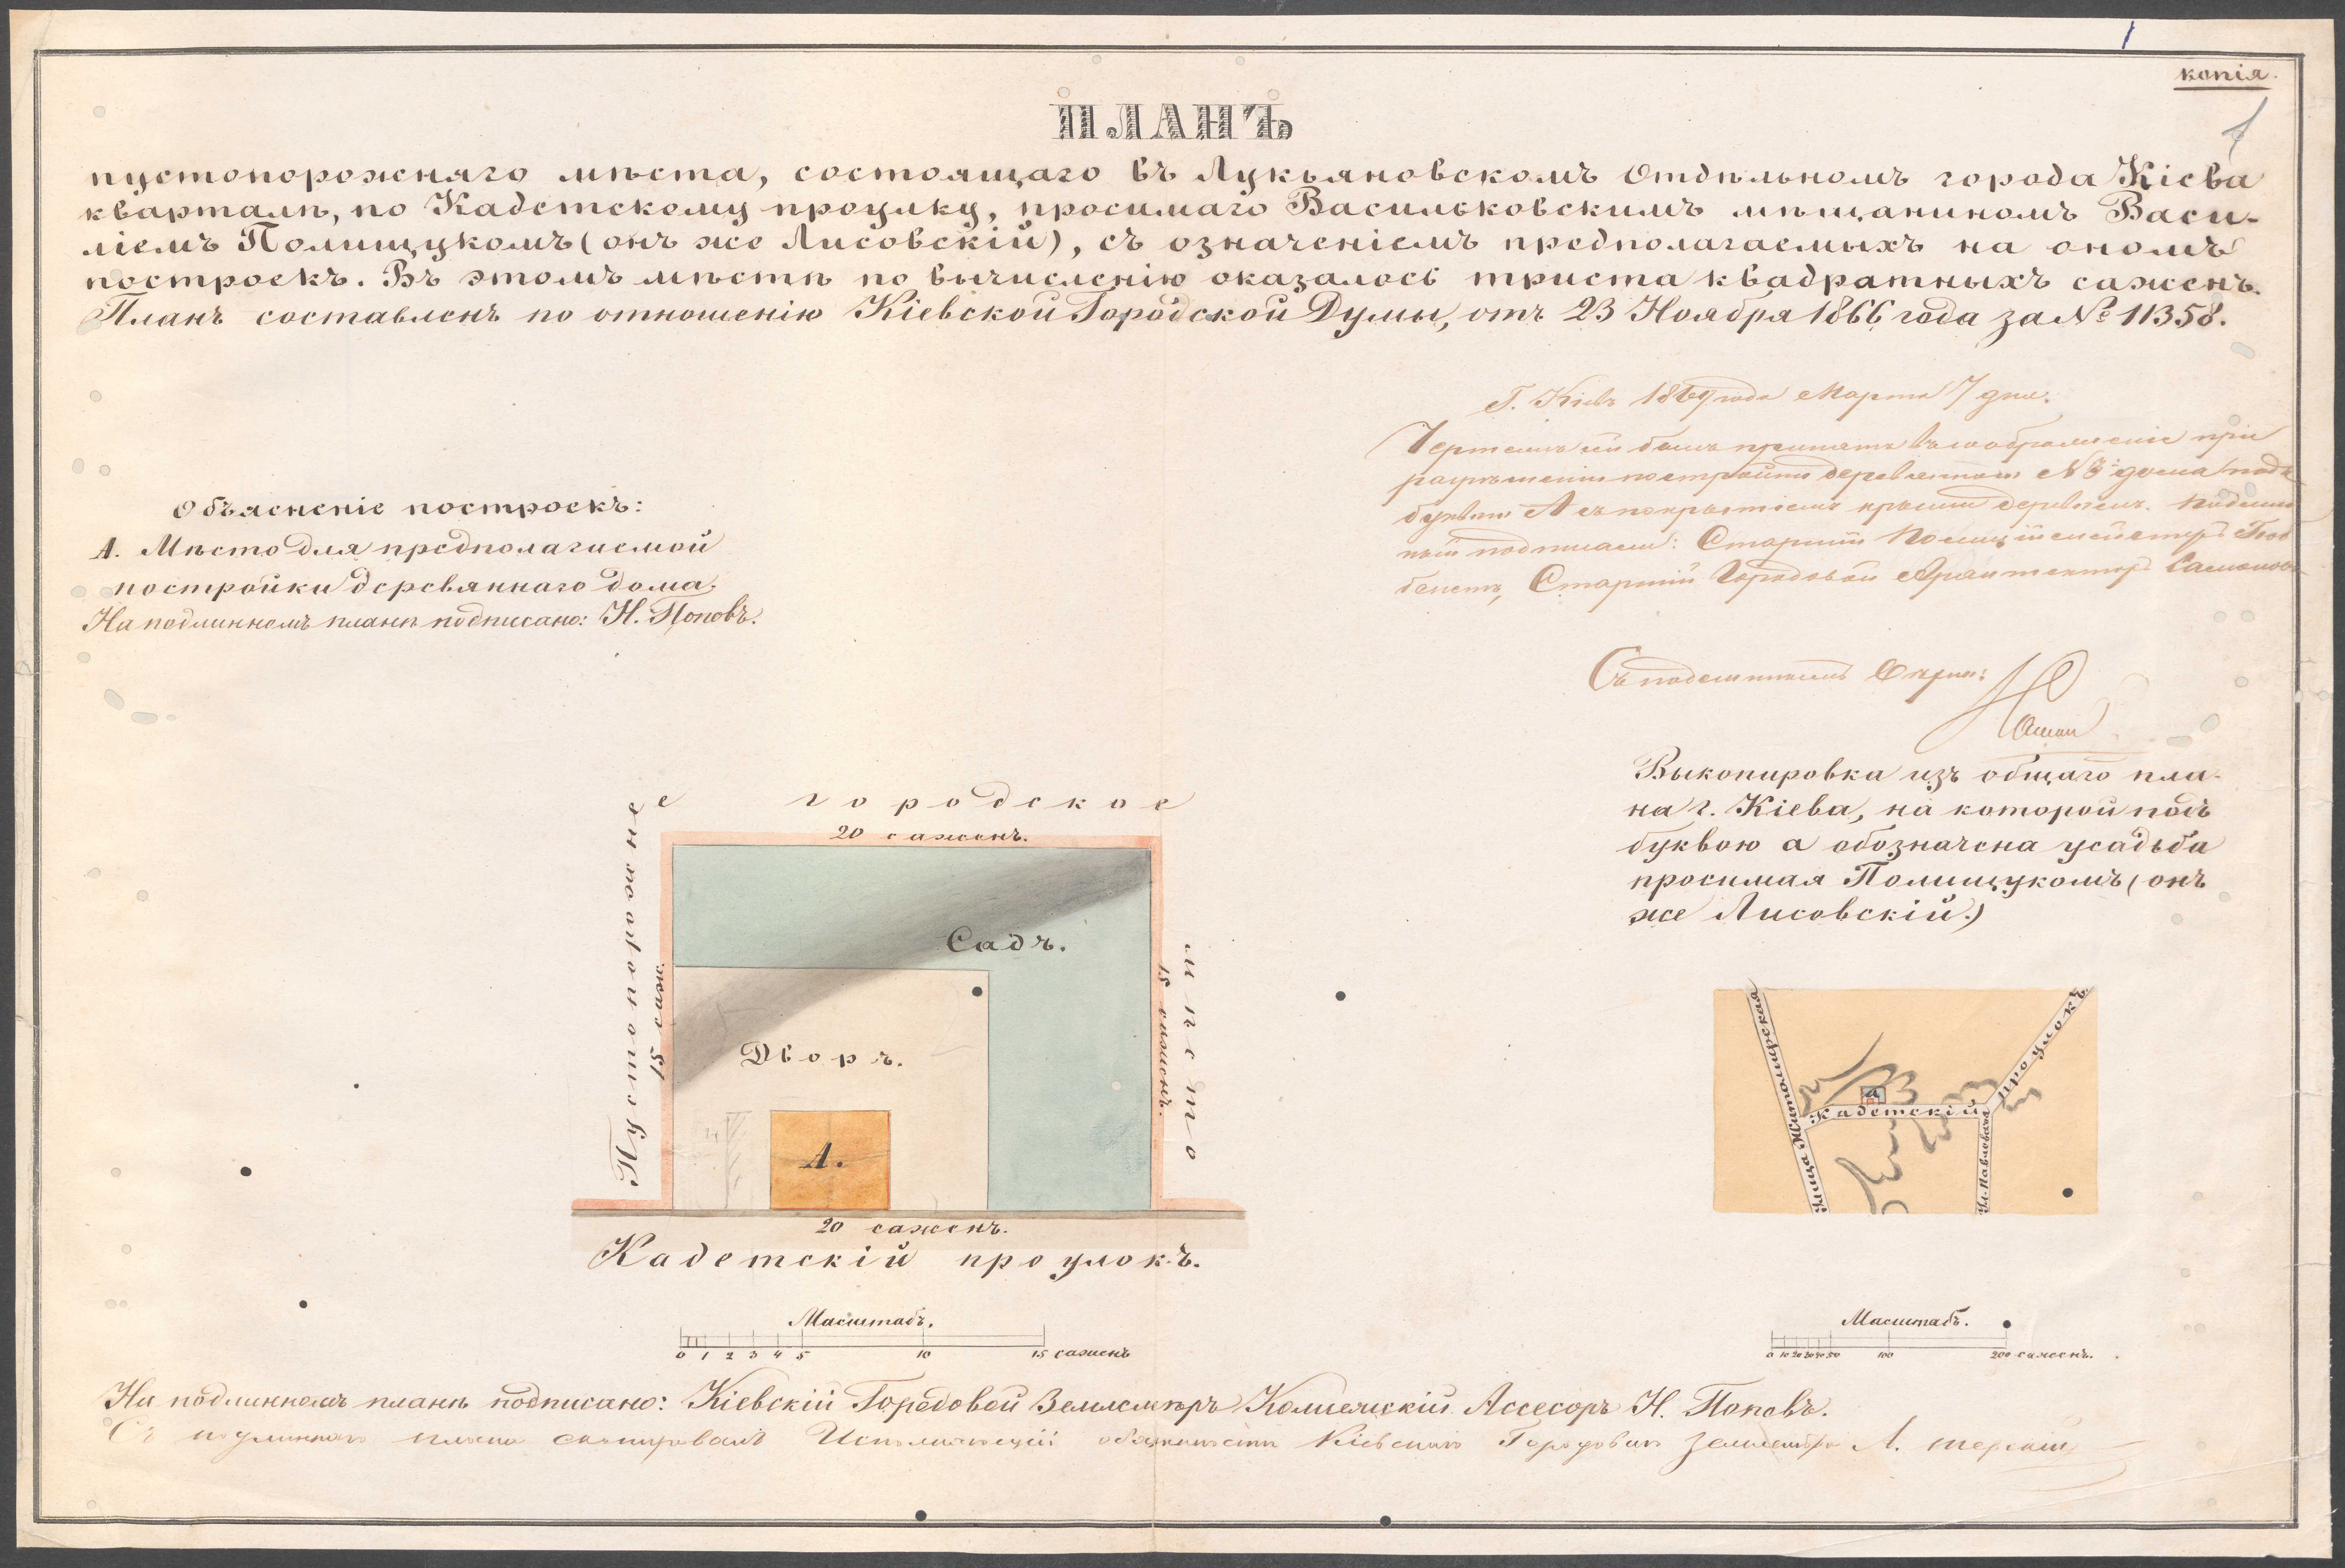 копія.
ПЛАНЪ
пустопорожняго мѣста, состоящаго въ Лукьяновскомъ Отдѣльномъ города Кіева
кварталѣ, по Кадетскому проулку, просимаго Васильковскимъ мѣщаниномъ Васи-
ліемъ Полищукомъ (онъ же Лисовскій), съ означеніемъ предполагаемыхъ на ономъ
построекъ. Въ этомъ мѣстѣ по вычисленію оказалось триста квадратныхъ саженъ.
Планъ составленъ по отношенію Кіевской Городской Думы, отъ 23 Ноября 1866 года за № 11358.
Г. Кіевъ 1869 года Марта 7 дня.
Чертежъ сей былъ принятъ въ соображеніе при
разрѣшеніи построить деревянного № 3 дома подъ
буквою А съ покрытіемъ крыши деревомъ. Подлин
ный подписали: Старшій Полицiймейстеръ
Старшій Городовой Архитекторъ
Съ подлиннымъ вѣрно:
Объясненіе построекъ:
А. Мѣсто для предполагаемой
постройки деревяннаго дома.
На подлинномъ планѣ подписано: Н. Поповъ.
Выкопировка изъ общаго пла-
на г. Кіева, на которой подъ
буквою а обозначена усадьба
просимая Полищукомъ (онъ
же Лисовскій.)
Пустопорожнее городское мѣсто
20 саженъ.
15 саж.
15 саженъ.
Садъ.
Дворъ.
А.
20 саженъ.
Кадетскій проулокъ.
Улица Житомирская
а
Кадетскій Проулокъ.
Ул. Павловская
Масштабъ.
0 1 2 3 4 5 10 15 саженъ
Масштабъ.
0 10 20 30 40 50 100 200 саженъ.
На подлинномъ планѣ подписано: Кіевскій Городовой Землемѣръ Коллежскій Ассесоръ Н. Поповъ.
Съ подлиннаго плана скопировалъ Исполняющій обязанности Кіевскаго Городоваго Землемѣра А.